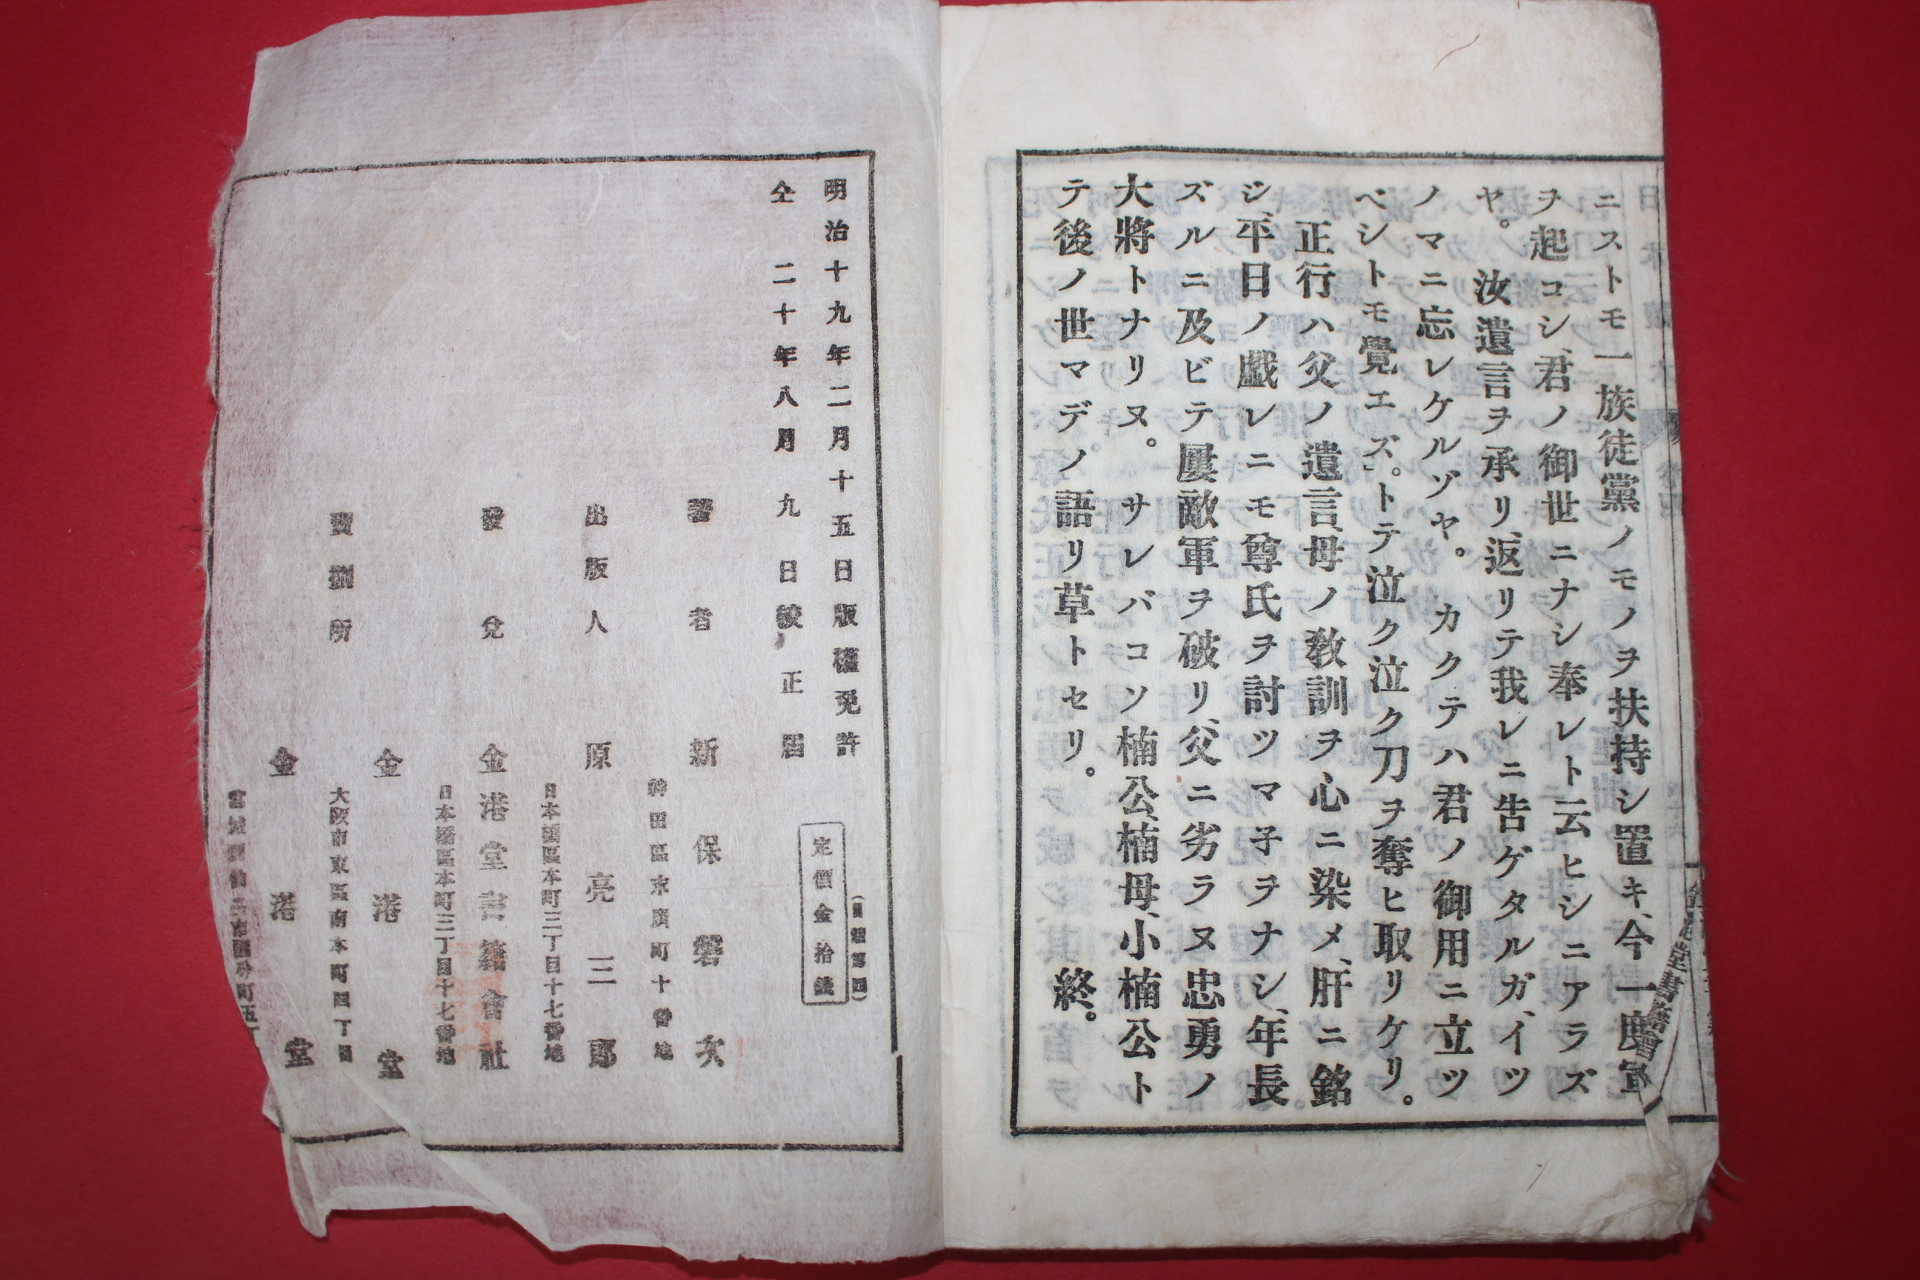 ニストモ一族徒黨ノモノヲ扶持シ置キ、今一度軍
ヲ起コシ、君ノ御世ニナシ奉レト云ヒシニアラズ
ヤ。汝遺言ヲ承リ、返リテ我レニ告ゲタルガ、イツ
ノマニ忘レケルゾヤ。カクテハ君ノ御用ニ立ツ
ベシトモ覺エズ。トテ泣ク泣ク刀ヲ奪ヒ取リケリ。
正行ハ父ノ遺言、母ノ敎訓ヲ心ニ染メ、肝ニ銘
シ、平日ノ戲レニモ尊氏ヲ討ツマ子ヲナシ、年長
ズルニ及ビテ屢敵軍ヲ破リ、父ニ劣ラヌ忠勇ノ
大將トナリヌ。サレバコソ楠公、楠母、小楠公ト
テ後ノ世マデノ語リ草トセリ。終。
明治十九年二月十五日版權免許
仝二十年八月九日校正屆
定價金拾錢
著者 新保磐次
神田區末廣町十番地
出版人 原亮三郎
日本橋區本町三丁目十七番地
發兌 金港堂書籍會社
日本橋區本町三丁目十七番地
金港堂
大阪市東區南本町四丁目
賣捌所 金港堂